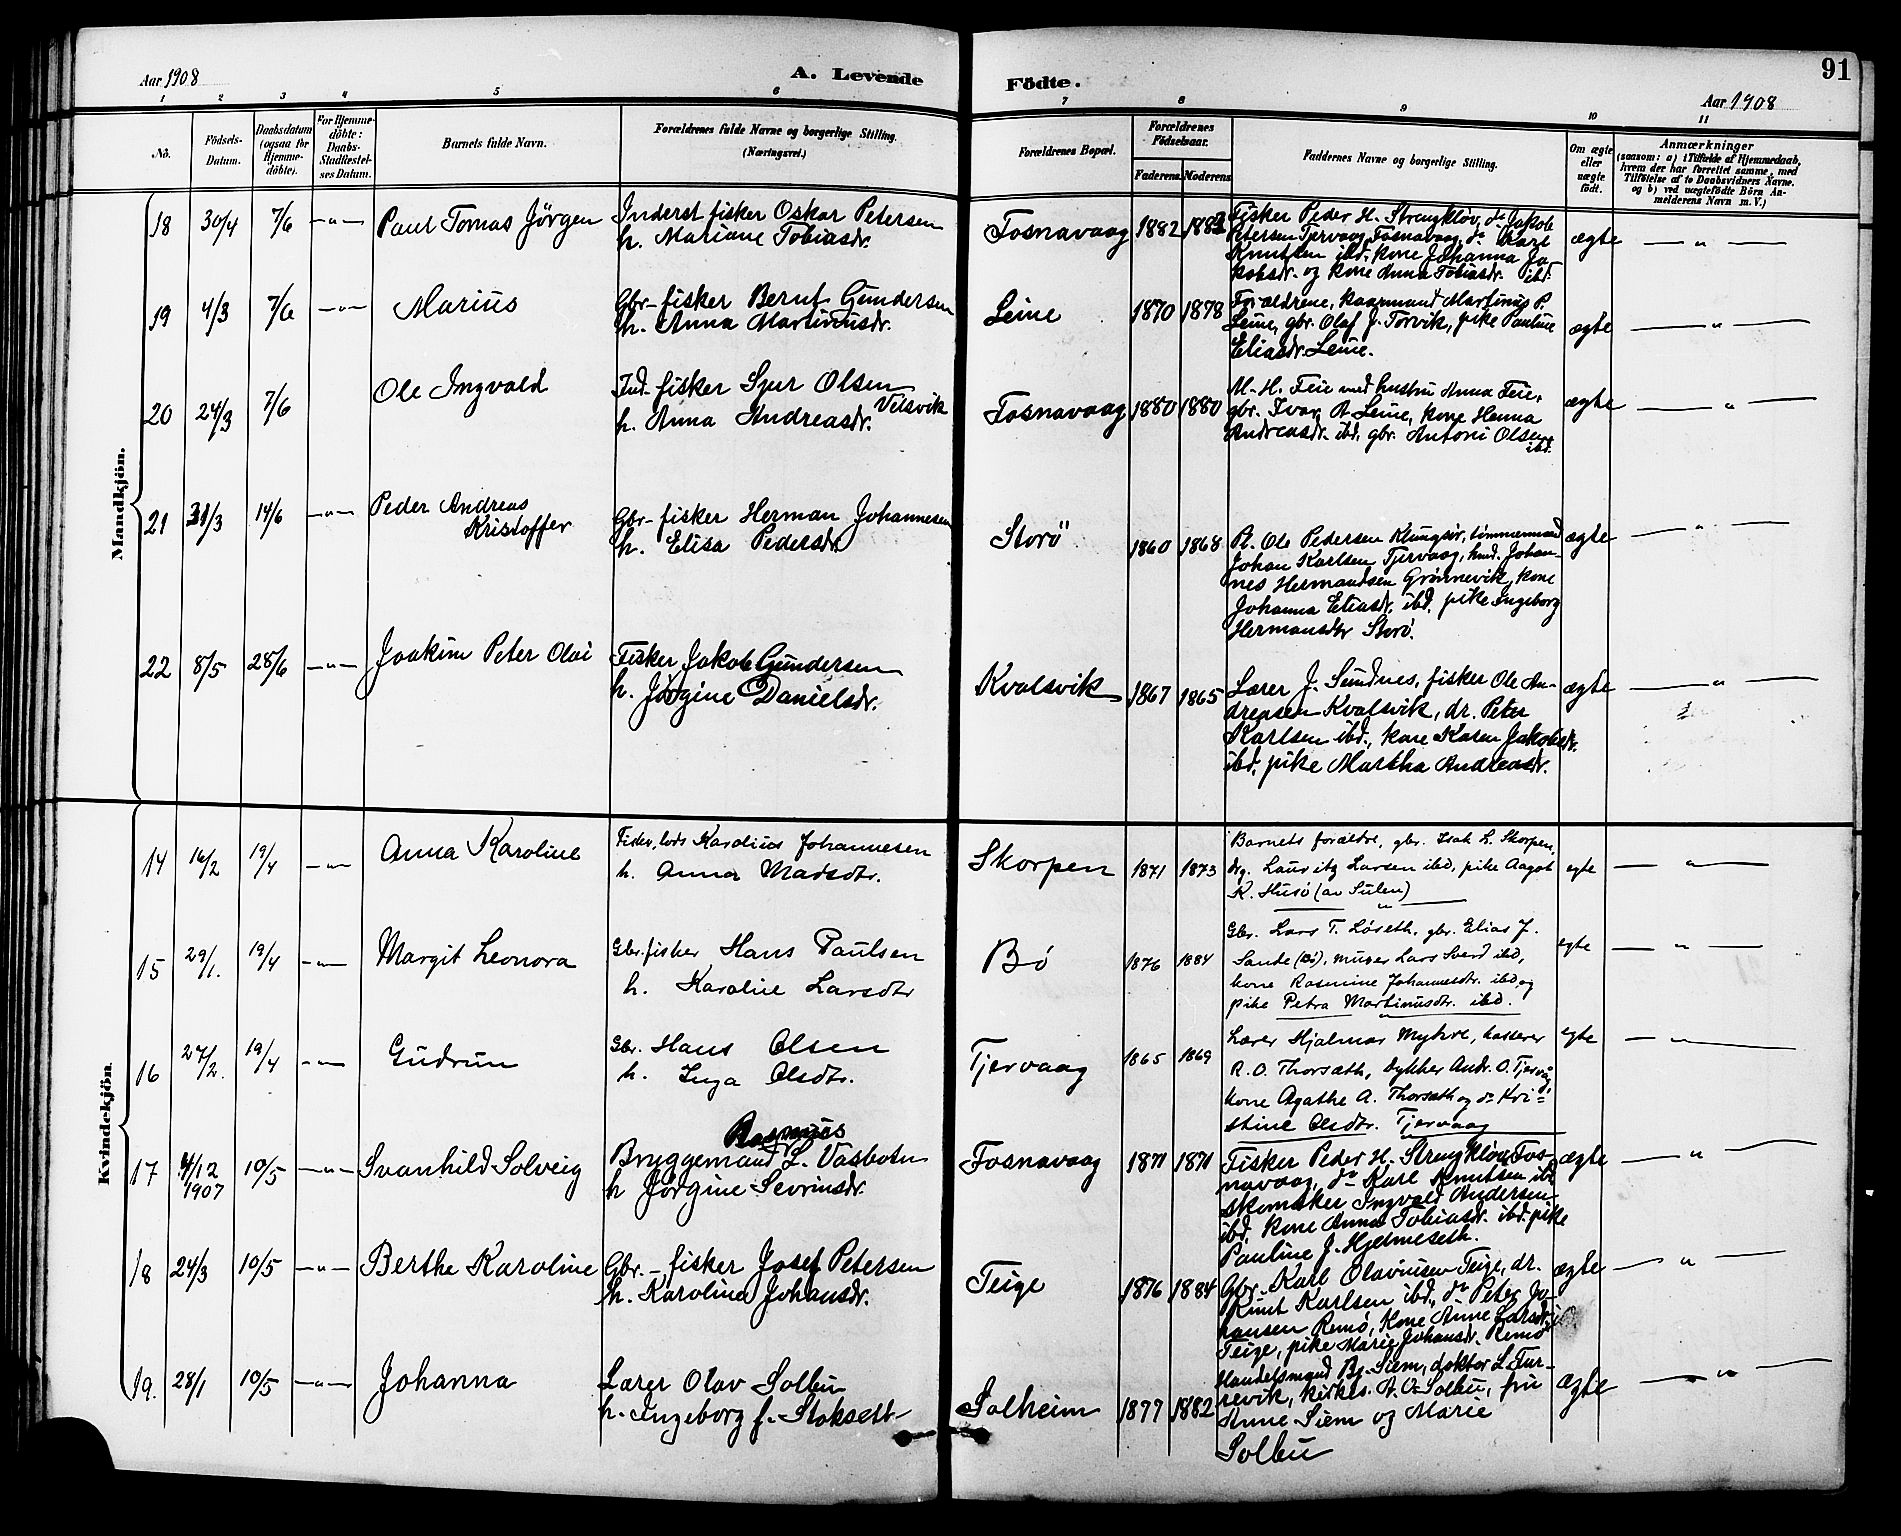 Aar 1908
A. Levende
Födte.
91
Aar 1908
1 2 3 4 5 6 7 8 9 10 11
No.
Födsels-
Datum.
Daabsdatum
(ogsaa for
Hjemme-
döbte).
For Hjemme-
döbte:
Daabs-
Stadfæstel-
ses Datum.
Barnets fulde Navn.
Forældrenes fulde Navne og borgerlige Stilling.
(Næringsvei.)
Forældrenes Bopæl.
Forældrenes
Födselsaar.
Faderens. Moderens.
Faddernes Navne og borgerlige Stilling.
Om ægte
eller
uægte
födt.
Anmærkninger
(saasom: a) i Tilfælde af Hjemmedaab,
hvem der har forrettet samme, med
Tilföielse af to Daabsvidners Navne.
og b) ved uægtefödte Börn An-
melderens Navn m. V.)
Mandkjön.
18 30/4 7/6 -„- Paul Tomas Jörgen
Inderst fisker Oskar Petersen
h. Mariane Tobiasdr.
Fosnavaag 1882 1882
Fisker Peder H. Strengkløv, do Jakob
Petersen Tjervaag, Fosnavaag, do Karl
Knutsen ibd. kone Johanna Ja-
kobsdr. og kone Anna Tobiasdr. ibd
ægte — „ —
19 4/3 7/6 -„- Marius
Gbr-fisker Bernt Gundersen
h. Anna Martinusdr.
Leine 1870 1878
Forældrene, kaarmand Martinus P.
Leine, gbr. Olaf J. Torvik, pike Pauline
Eliasdr. Leine.
ægte — „ —
20 24/3 7/6 Ole Ingvald
Ind. fisker Sjur Olsen
Velsvik
h. Anna Andreasdr.
Fosnavaag 1880 1880
M. H. Teie med hustru Anna Teie,
gbr. Ivar A. Leine, kone Hanna
Andreasdr. ibd, gbr. Antoni Olsen
ibd.
ægte — „ —
21 31/3 14/6 -„- Peder Andreas
Kristoffer
Gbr-fisker Herman Johannesen
h. Elisa Pedersdr.
Storö 1860 1868
R. Ole Pedersen Klungsör, tömmermand
Johan Karlsen Tjervaag, hmd. Johan-
nes Hermandsen Grönnevik, kone
Johanna Eliasdr. ibd. pike Ingeborg
Hermansdtr Storö.
ægte — „ —
22 8/5 28/6 -„- Joakim Peter Olai
Fisker Jakob Gundersen
h. Jörgine Danielsdr.
Kvalsvik 1867 1865
Lærer J. Sundnes, fisker Ole An-
dreasen Kvalsvik, dr. Peter
Karlsen ibd., kone Karen Jakobsdr.
ibd, pike Martha Andreasdr.
ægte — „ —
Kvindekjön.
14 16/2 19/4 -„- Anna Karoline
Fisker, lods Karolius Johannesen
h. Anna Madsdtr.
Skorpen 1871 1873
Barnets forældre, gbr. Isak L. Skorpen,
drg. Lauritz Larsen ibd, pike Aagot
K. Husö (av Sulen)
egte — „ —
15 29/1. 19/4 -„- Margit Leonora
Gbr. fisker Hans Paulsen
h. Karoline Larsdtr
Bö 1876 1884
Gbr. Lars T. Löseth, gbr. Elias J.
Sande (Bö), murer Lars Sverd ibd,
kone Rasmine Johannesdtr. ibd, og
pike Petra Martinusdtr. ibd.
egte — „ —
16 27/2. 19/4 -„- Gudrun
Gbr. Hans Olsen
h. Inga Olsdtr.
Tjervaag 1865 1869
Lærer Hjalmar Myhre, kasserer
R. O. Thorsæth, dykker Andr. O. Tjervåg,
kone Agathe A. Thorsæth og do Kri-
stine Olsdtr. Tjervaag
egte — „ —
17 4/12 1907 10/5 -„- Svanhild Solveig
Rasmus
Bryggemand L. Vasbotn
h Jörgine Sevrinsdr.
Fosnavaag 1871 1871
Fisker Peder H. Strengkløv, Fos-
navaag, do Karl Knutsen ibd
skomaker Ingvald Andersen
ibd, kone Anna Tobiasdr. ibd. pike
Pauline J. Hjelmeseth.
ægte — „ —
18 24/3 10/5 -„- Berthe Karoline
Gbr.-fisker Josef Petersen
h. Karoline Johansdr.
Teige 1876 1884
Gbr. Karl Olavnisen Teige, dr.
Knut Karlsen ibd., do Peter Jo-
hansen Remö, kone Anne Larsdr.
Teige, pike Marie Johansdr. Remö
ægte — „ —
19. 28/1 10/5 -„- Johanna
Lærer Olav Solbu
h. Ingeborg f. Stokseth
Solheim 1877 1882
Handelsmand Bj. Siem, doktor L. Fur-
revik, kirkes. A. O. Solbu, fru
Anne Siem og Marie
Solbu
ægte — „ —